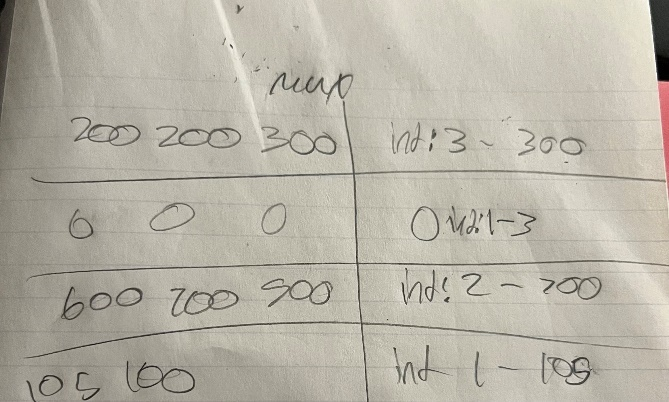 max
200 200 300 ind: 3 - 300
0 0 0 0 ind: 1-3
600 700 500 ind: 2 - 700
105 100 ind 1 - 105